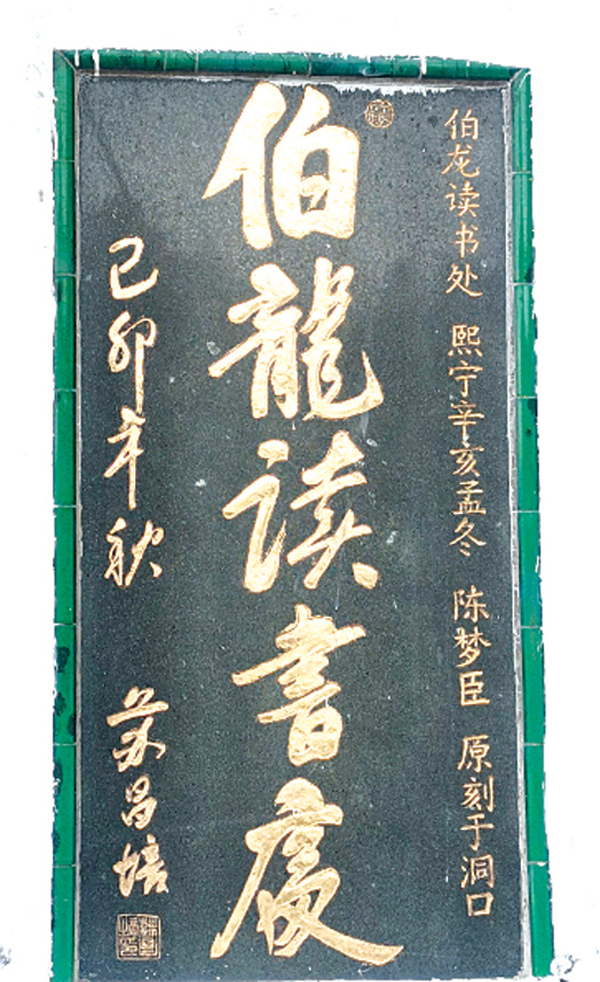 伯龙读书处 熙宁辛亥孟冬 陈梦臣 原刻于洞口
伯龍读書處
己卯年秋 苏昌培